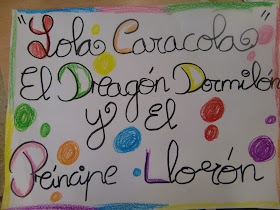 "Lola Caracola"
El Dragón Dormilón
y El
Príncipe Llorón